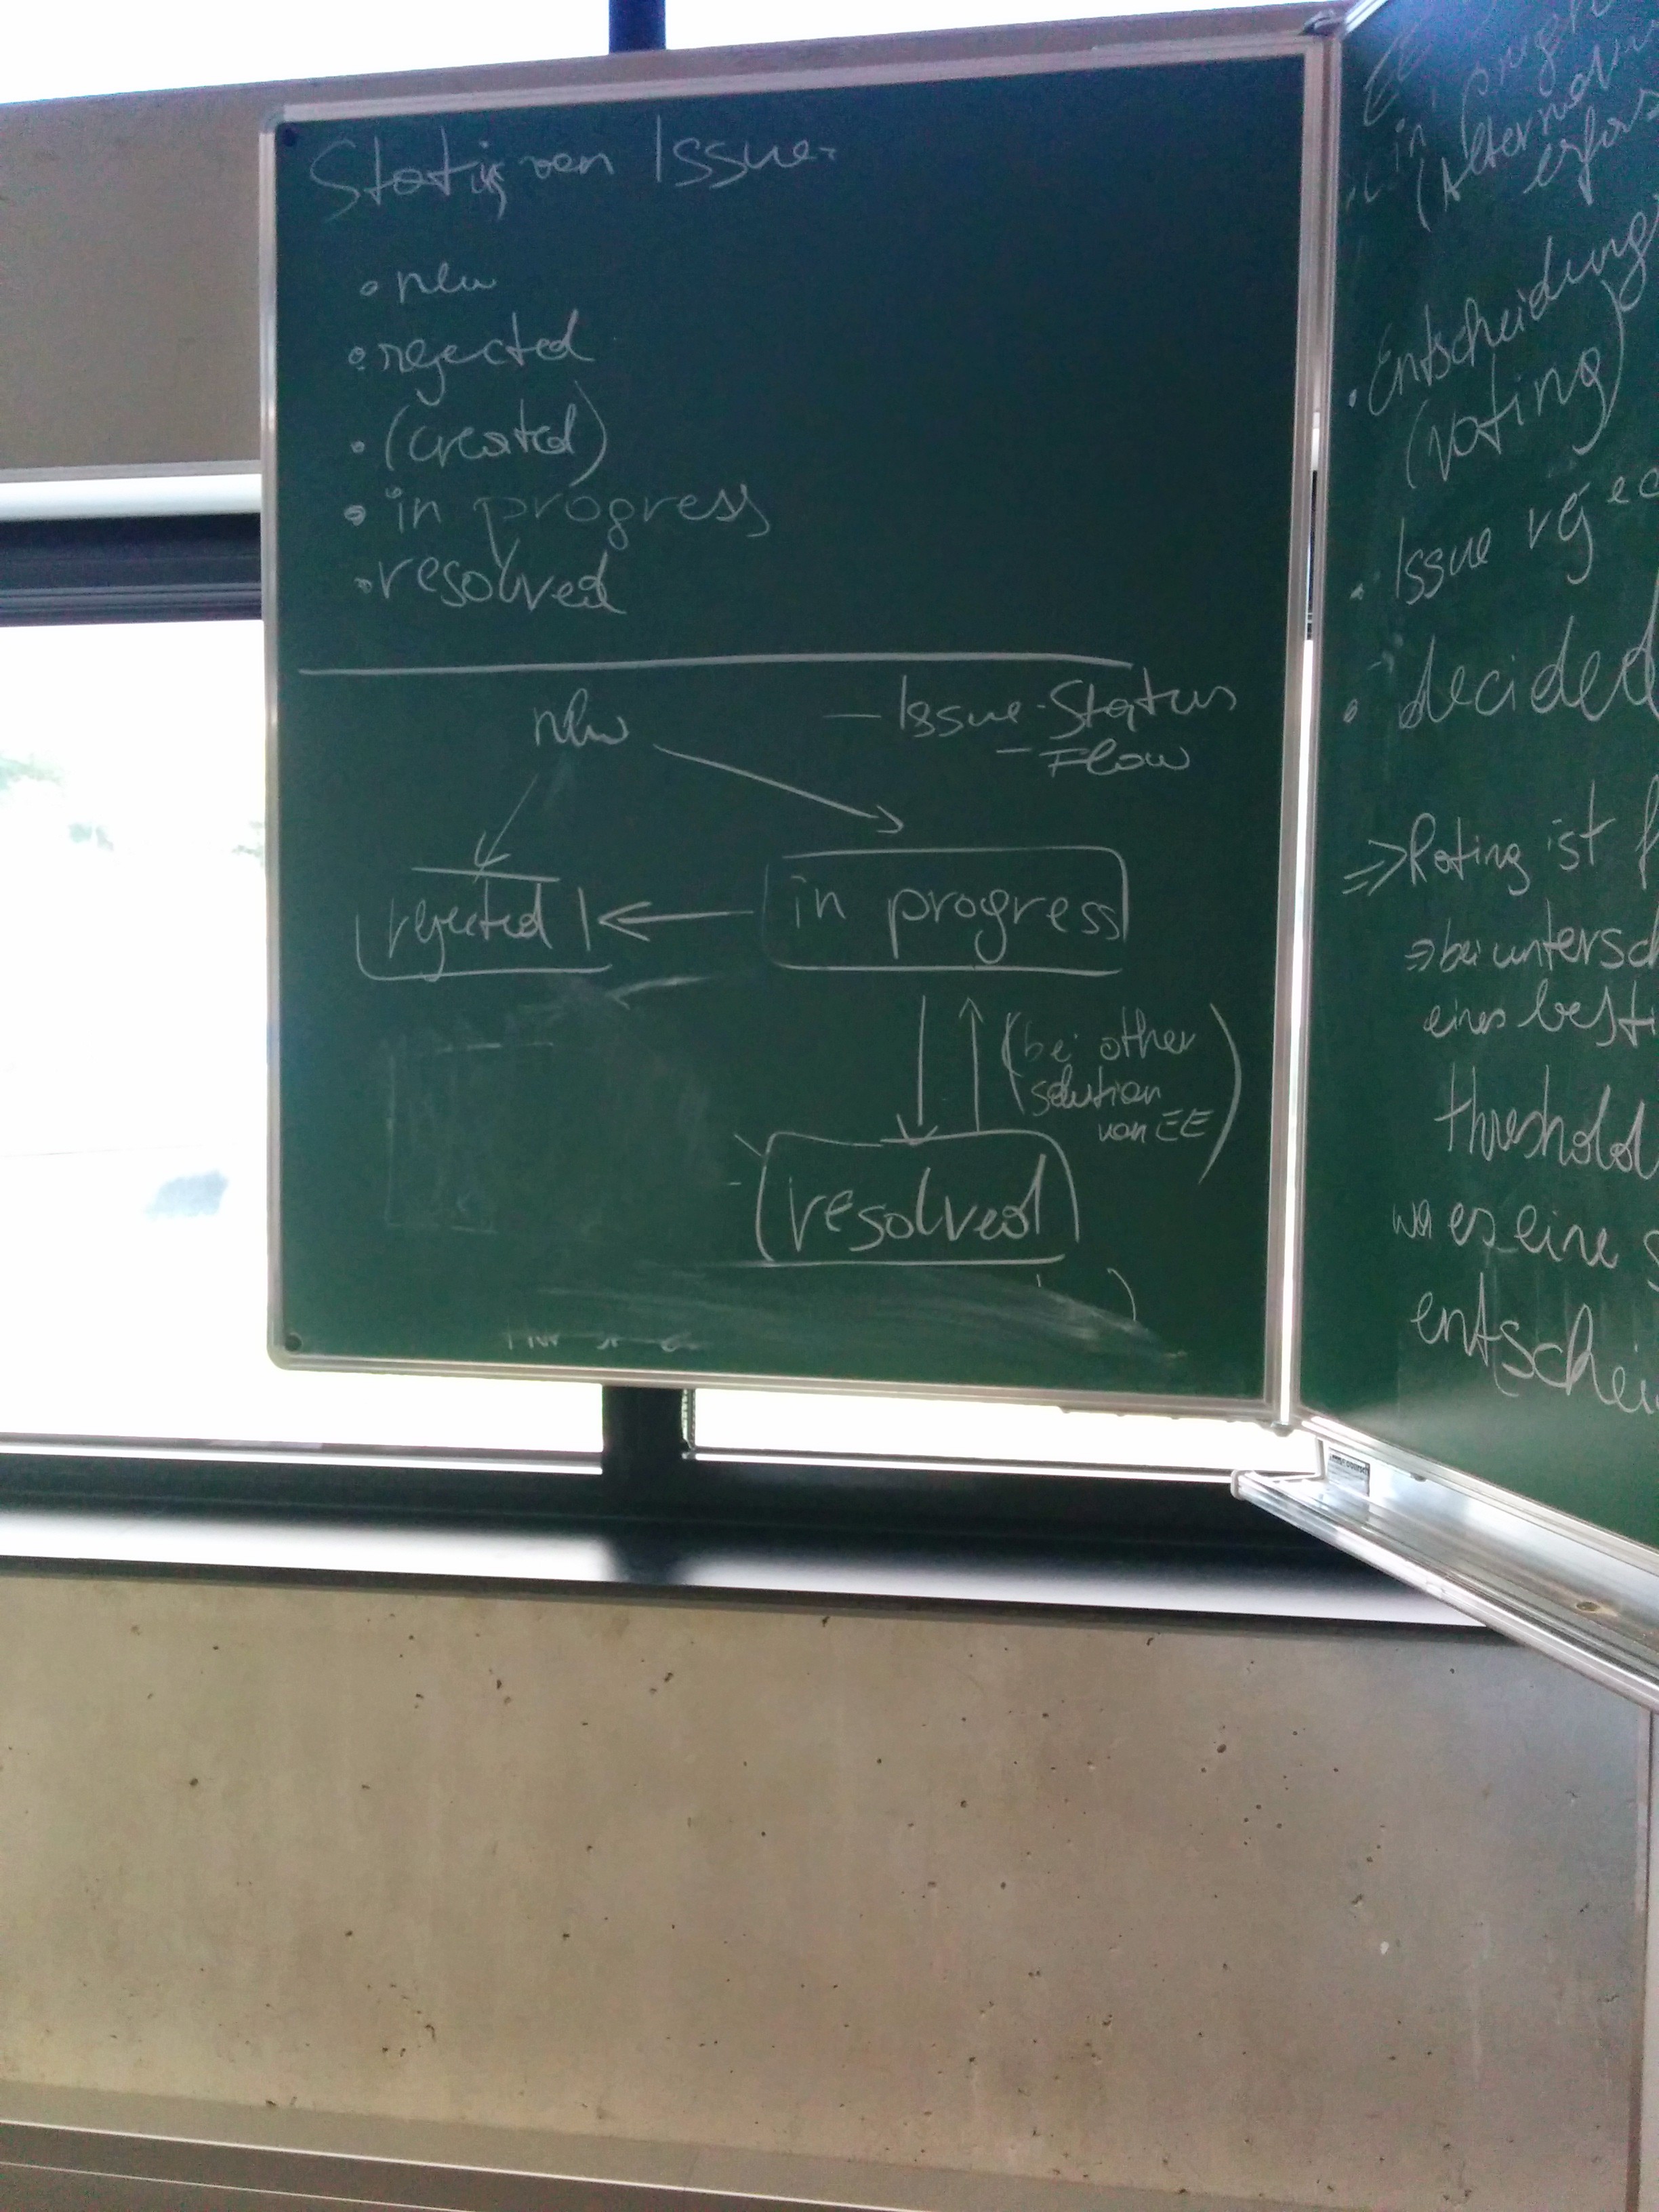 von Issue
• new
• rejected
• (created)
• in progress
• resolved
new
– Issue-Status
– Flow
rejected
in progress
(bei other
solution
von EE)
resolved
in
(Altern
• Entscheidung
(voting)
• Issue rejec
• decided
=> Rating ist
=> bei untersch
eines besti
threshold
wo es eine
entschei